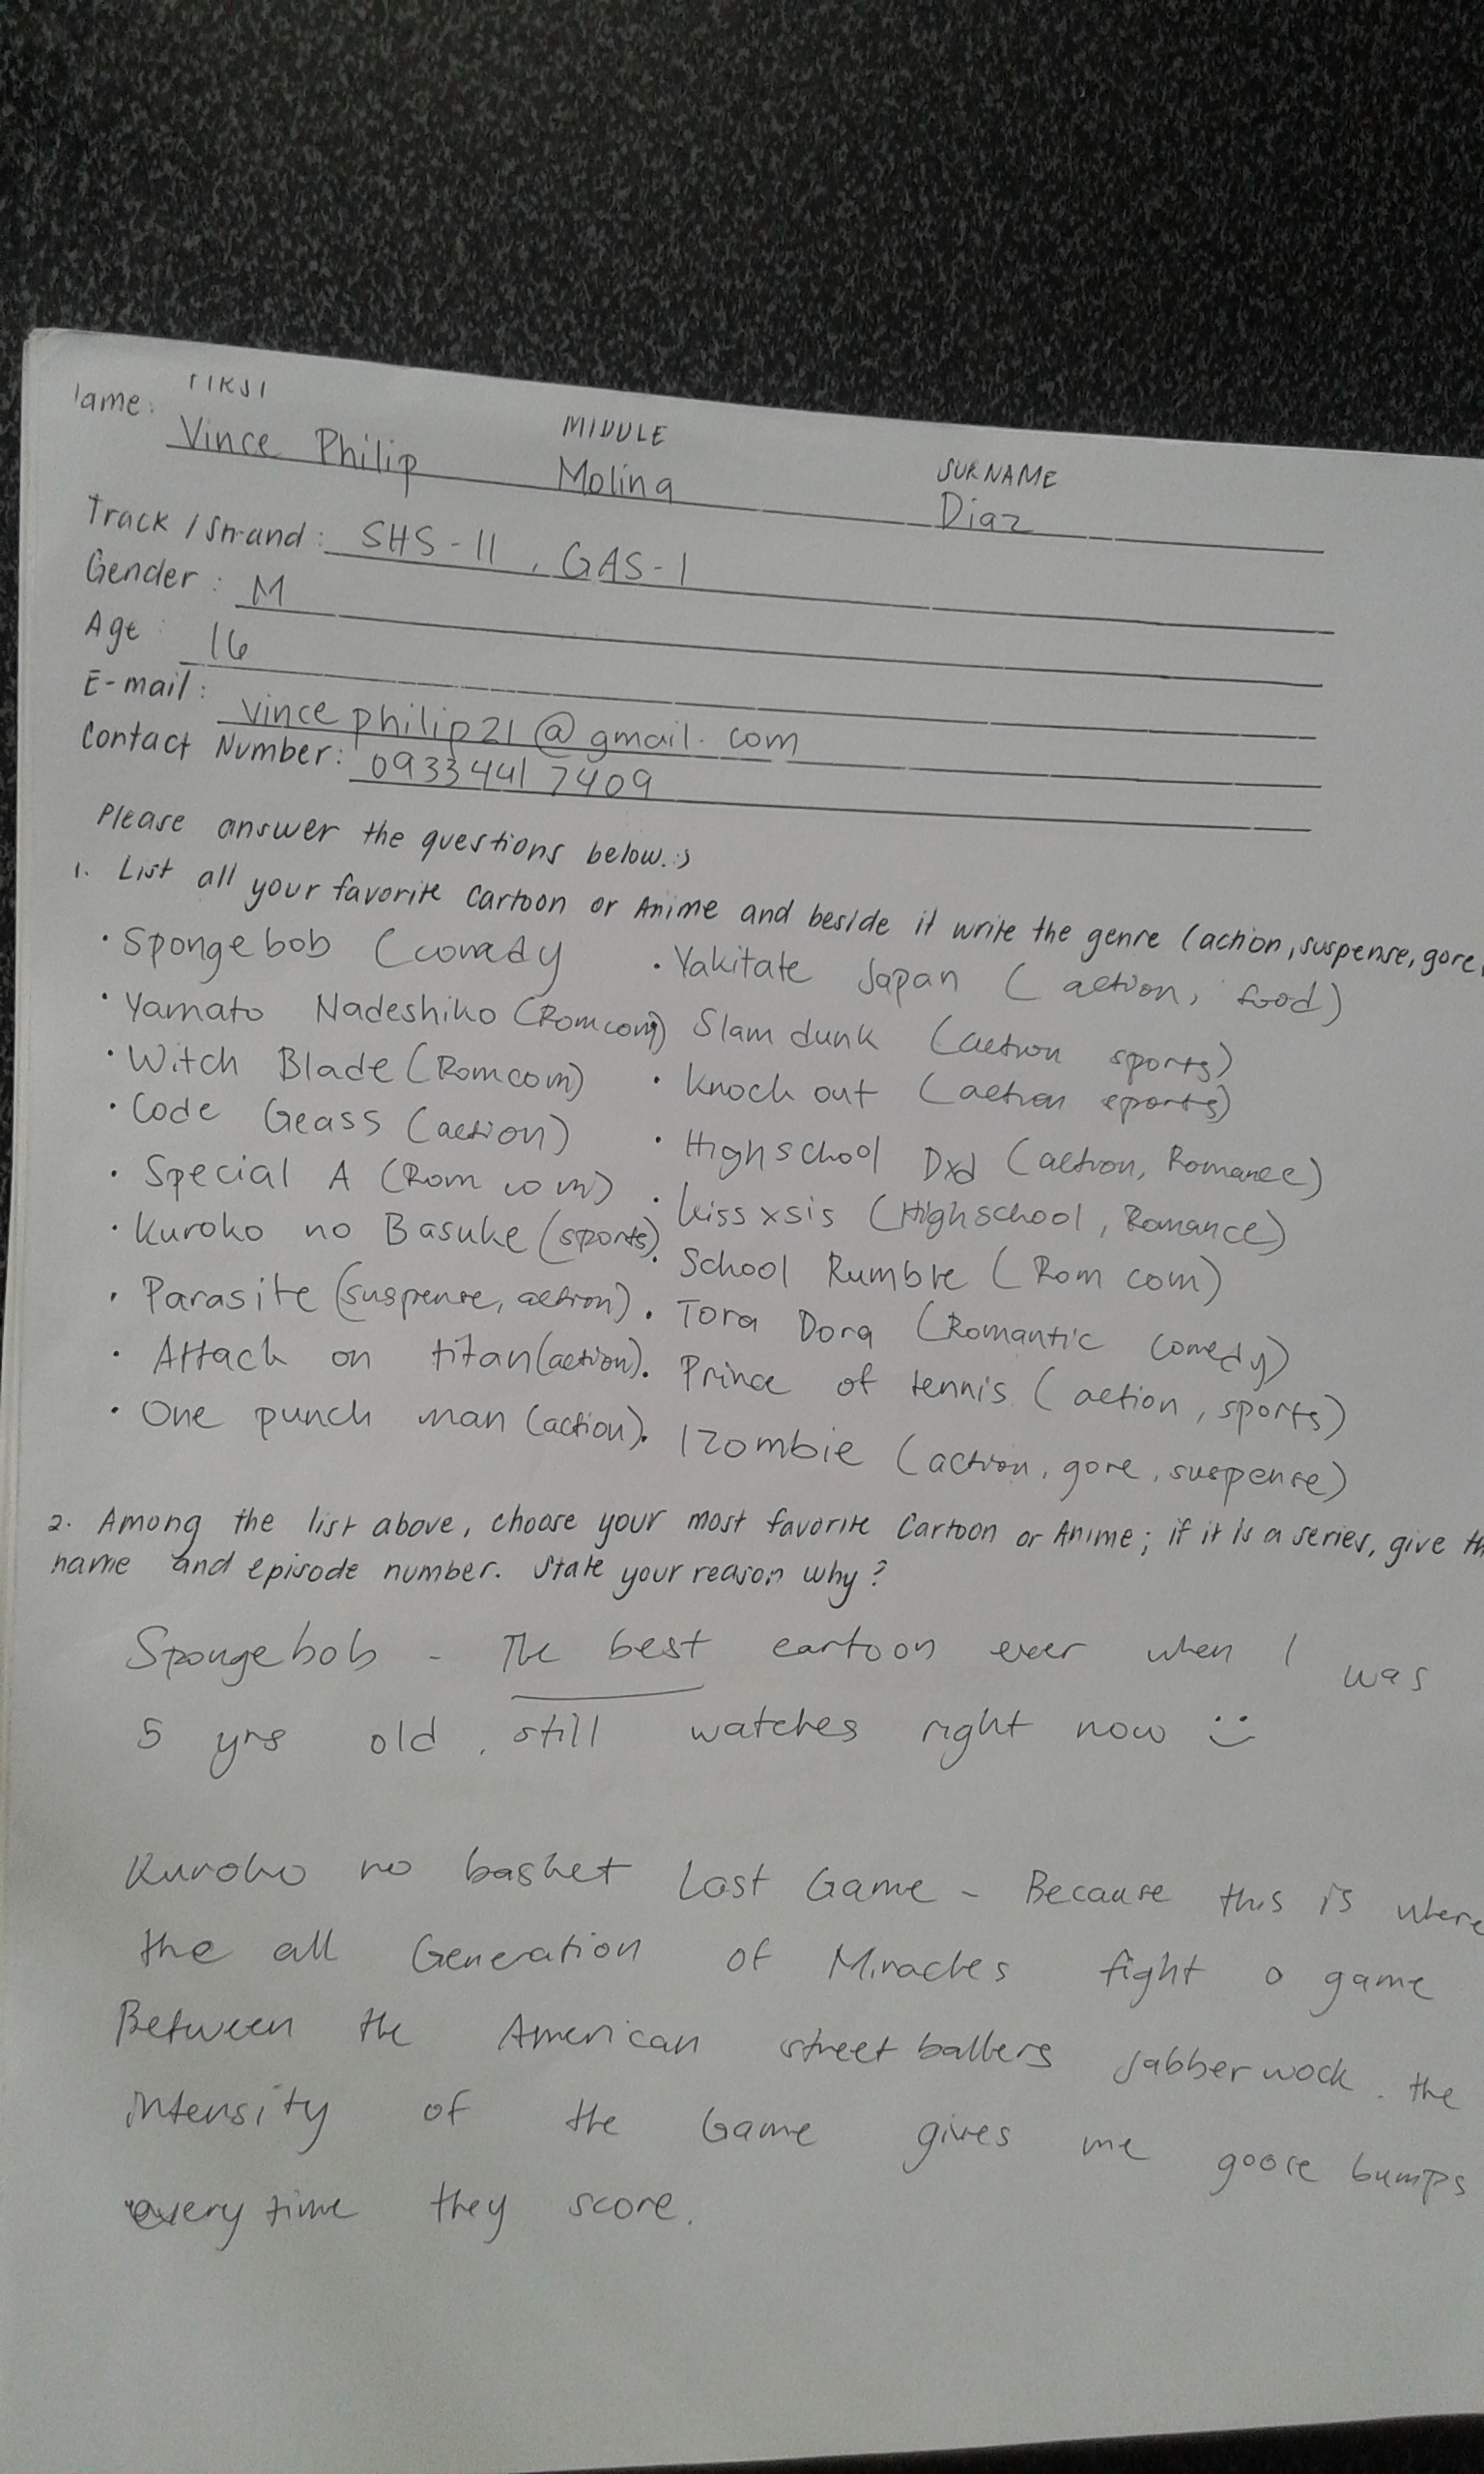 FIRST MIDDLE SURNAME
Name: Vince Philip Molina Diaz
Track / Strand: SHS-11, GAS-1
Gender: M
Age: 16
E-mail: vincephilip21@gmail.com
Contact Number: 0933 441 7409
Please answer the questions below. :)
1. List all your favorite Cartoon or Anime and beside it write the genre (action, suspense, gore,
• Spongebob (comedy • Yakitate Japan (action, food)
• Yamato Nadeshiko (Romcom) Slam dunk (action sports)
• Witch Blade (Romcom) • Knock out (action sports)
• Code Geass (action) • Highschool Dxd (action, Romance)
• Special A (Rom com) • kissxsis (Highschool, Romance)
• Kuroko no Basuke (sports) • School Rumble (Rom com)
• Parasite (suspense, action) • Tora Dora (Romantic comedy)
• Attack on titan (action) • Prince of tennis (action, sports)
• One punch man (action) • IZombie (action, gore, suspense)
2. Among the list above, choose your most favorite Cartoon or Anime; if it is a series, give th
name and episode number. State your reason why?
Spongebob - The best cartoon ever when I was
5 yrs old. still watches right now :)
Kuroko no basket Last Game - Because this is where
the all Generation of Miracles fight a game
Between the American street ballers Jabberwock. the
intensity of the Game gives me goose bumps
every time they score.